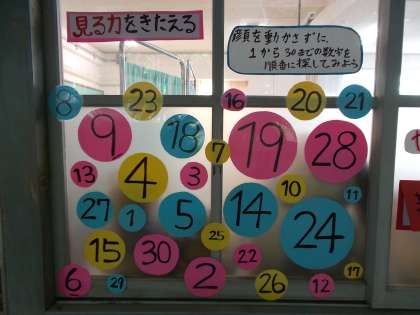 見る力をきたえる
顔を動かさずに、
1から30までの数字を
順番に探してみよう
8
23
16
20
21
9
18
7
19
28
13
4
3
10
11
27
1
5
14
24
25
15
30
22
17
6
29
2
26
12